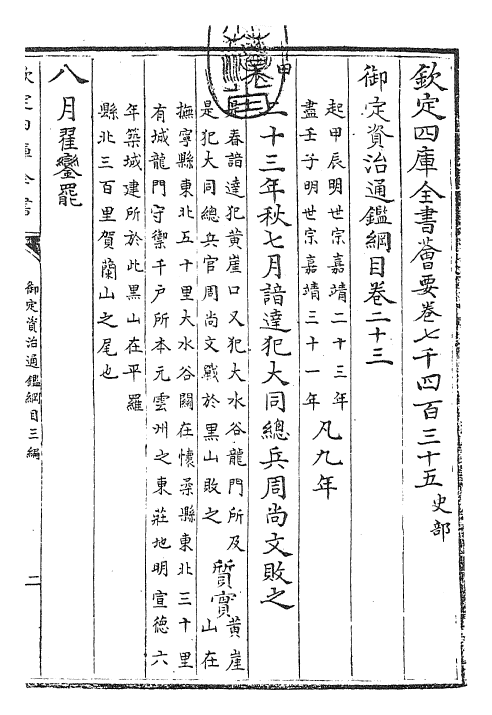 欽定四庫全書薈要卷七千四百三十五 史部
御定資治通鑑綱目卷二十三
起甲辰明世宗嘉靖二十三年
盡壬子明世宗嘉靖三十一年
凡九年
二十三年秋七月諳達犯大同總兵周尚文敗之
是春諳達犯黃崖口又犯大水谷龍門所及
是犯大同總兵官周尚文戰於黑山敗之
質實
黃崖
山在
撫寧縣東北五十里大水谷關在懷柔縣東北三十里
有城龍門守禦千戶所本元雲州之東莊地明宣德六
年築城建所於此黑山在平羅
縣北三百里賀蘭山之尾也
八月翟鑾罷
欽定四庫全書
御定資治通鑑綱目三編
二